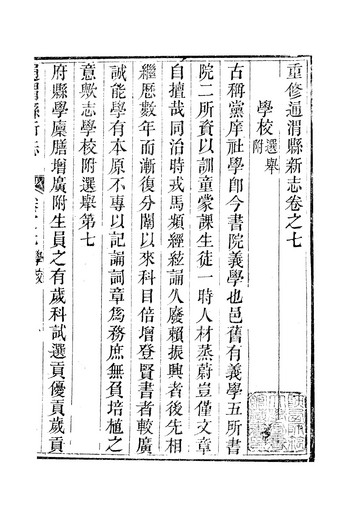 重修通渭縣新志卷之七
學校附選舉
古稱黨庠社學即今書院義學也邑舊有義學五所書
院二所資以訓童蒙課生徒一時人材蒸蔚豈僅文章
自擅哉同治時戎馬頻經絃誦久廢賴振興者後先相
繼歷數年而漸復分闈以來科目倍增登賢書者較廣
誠能學有本原不專以記誦詞章為務庶無負培植之
意歟志學校附選舉第七
府縣學廩膳增廣附生員之有歲科試選貢優貢歲貢
通渭縣新志
學校